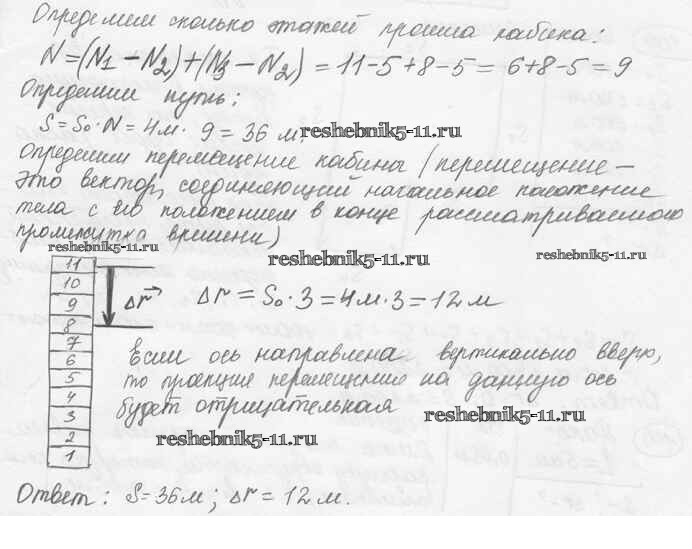 Определим сколько этажей прошла кабина:
N=(N₁-N₂)+(N₃-N₂)=11-5+8-5=6+8-5=9
Определим путь:
S=S₀·N=4м·9=36 м. reshebnik5-11.ru
Определим перемещение кабины (перемещение –
это вектор, соединяющий начальное положение
тела с его положением в конце рассматриваемого
промежутка времени)
reshebnik5-11.ru
reshebnik5-11.ru
reshebnik5-11.ru
11
10
9
8
7
6
5
4
3
2
1
Δr⃗
Δr=S₀·3=4м·3=12м
Если ось направлена вертикально вверх,
то проекция перемещение на данную ось
будет отрицательная reshebnik5-11.ru
reshebnik5-11.ru
Ответ: S=36м; Δr=12м.